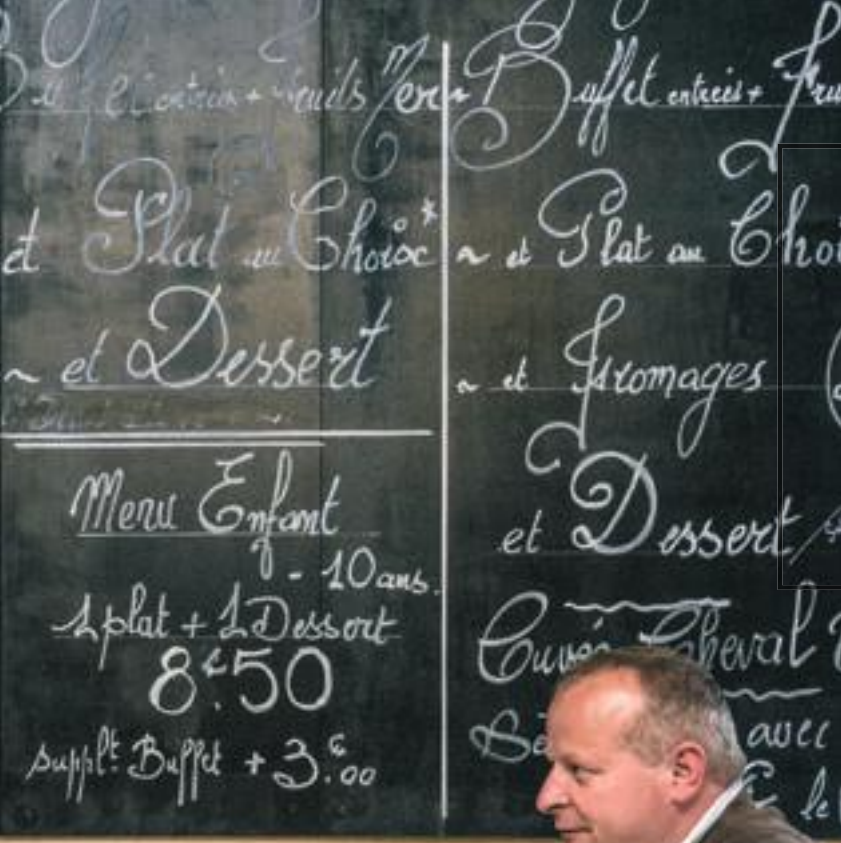 Buffet entrées + Fruits Mer
et Plat au Choix*
~ et Dessert
Menu Enfant
- 10 ans.
1 plat + 1 Dessert
8€.50
supplt Buffet + 3.€00
~ Buffet entrées + Fru
~ et Plat au Choi
~ et Fromages
et Dessert
Cuvée Cheval
avec
€ le